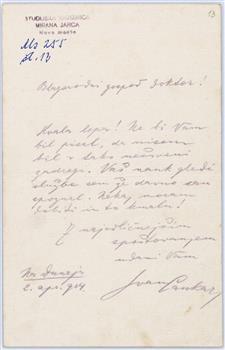 13
ŠTUDIJSKA KNJIŽNICA
MIRANA JARCA
Novo mesto
Ms 255
št. 13
Blagorodni gospod doktor!
Hvala lepa! Ne bi Vam
bil pisal, da nisem
bil v tako
zadregi. Vaš nauk gledé
službe sem že davno sam
spoznal. Nekaj moram
dobiti in to kmalu!
Z najodličnejšim
spoštovanjem
udani Vam
Ivan Cankar
Na Dunaji
2. apr.